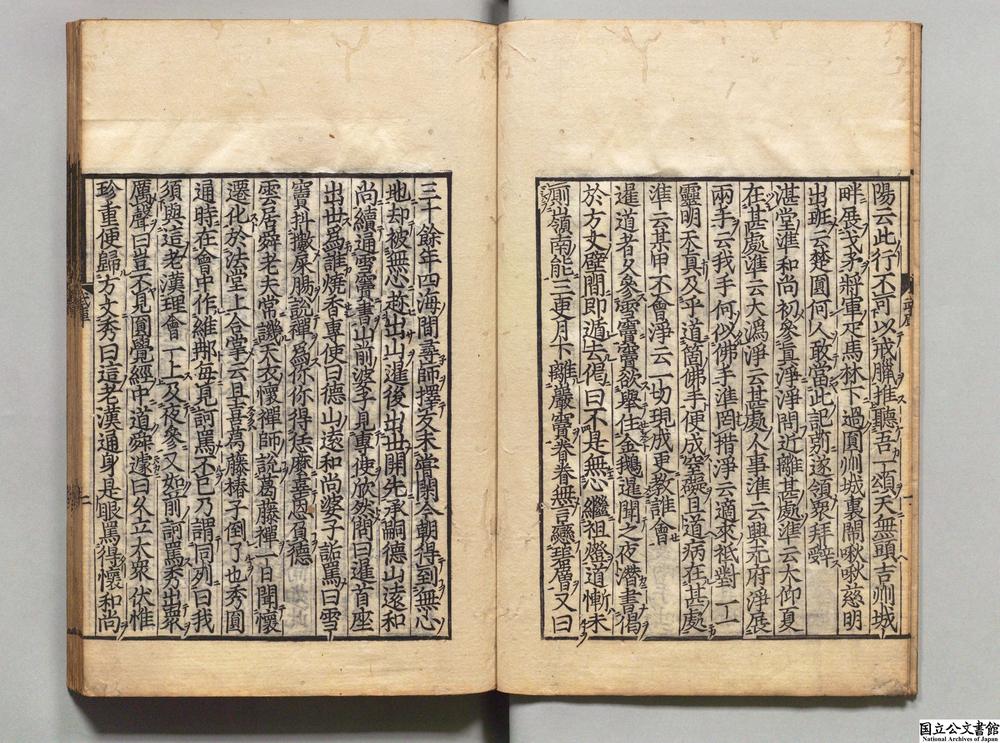 陽云此行不可以戒臘推聽吾一頌天無頭吉州城
畔展戈矛將軍疋馬林下過圓州城裏鬧啾啾慈明
出班云楚圓何人敢當此記莂遂領衆拜辭
湛堂準和尚初參真淨淨問近離甚處準云大仰夏
在甚處準云大溈淨云甚處人事準云興元府淨展
兩手云我手何似佛手準罔措淨云適來祗對一一
靈明天真及乎道箇佛手便成窒礙且道病在甚處
準云某甲不會淨云一切現成更教誰會
暹道者久參雪竇竇欲擧住金鵝暹聞之夜潛書偈
於方丈壁間即遁去偈曰不是無心繼祖燈道慚未
廁嶺南能三更月下離巖竇眷眷無言戀碧層又曰
三十餘年四海間尋師擇友未嘗閑今朝得到無心
地却被無心趂出山暹後出世開先承嗣德山遠和
尚續通雪竇書山前婆子見專使欣然問曰暹首座
出世爲誰燒香專使曰德山遠和尚婆子詬罵曰雪
竇抖擻屎腸說禪爲你你得恁麼辜恩負德
雲居舜老夫常譏天衣懷禪師說葛藤禪一日聞懷
遷化於法堂上合掌云且喜葛藤樁子倒了也秀圓
通時在會中作維那每見訶罵不已乃謂同列曰我
須與這老漢理會一上及夜參又如前訶罵秀出衆
厲聲曰豈不見圓覺經中道舜遽曰久立大衆伏惟
珍重便歸方丈秀曰這老漢通身是眼罵得懷和尚
国立公文書館
National Archives of Japan